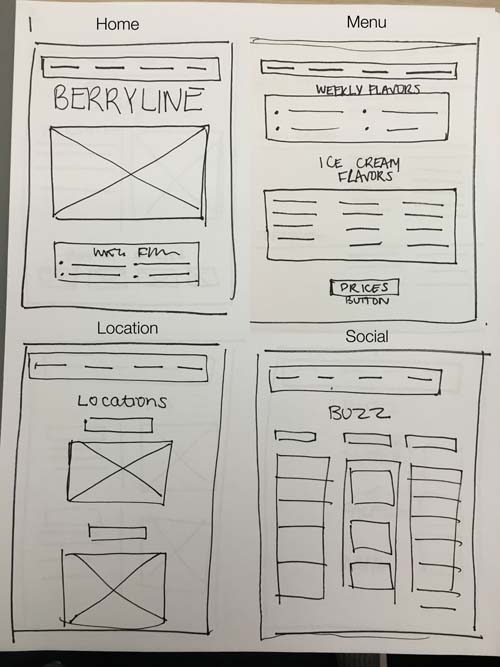 Home
BERRYLINE
Menu
WEEKLY FLAVORS
ICE CREAM
FLAVORS
PRICES
BUTTON
Location
Locations
Social
BUZZ